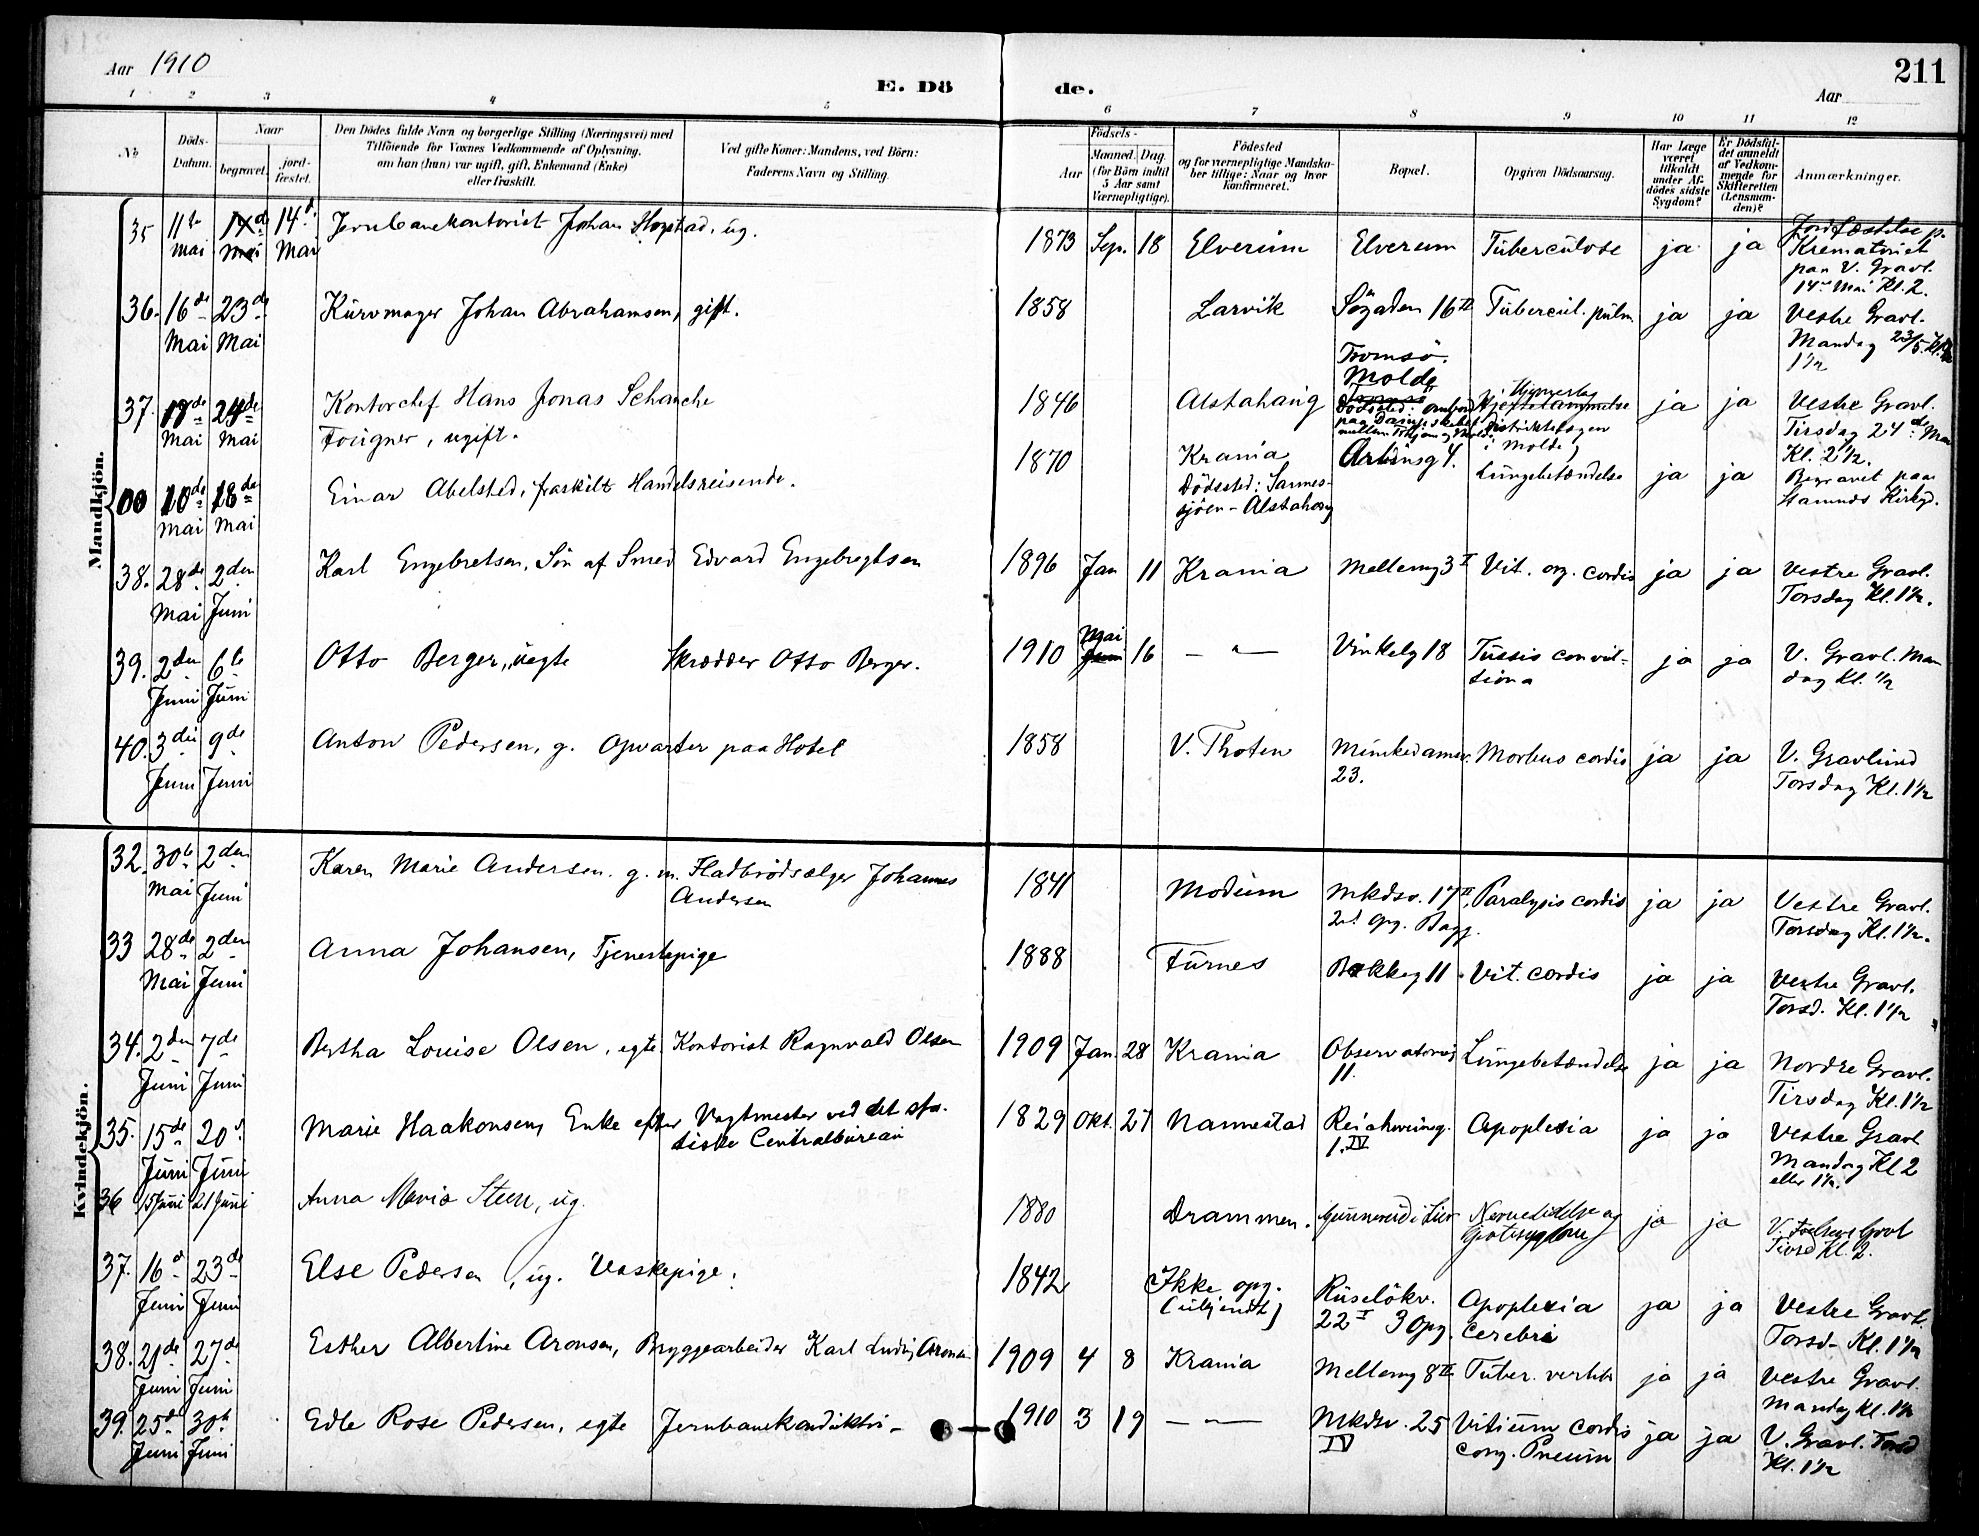 Aar 1910
E. Dö de.
211
Aar
1 2 3 4 5 6 7 8 9 10 11 12
No.
Döds-Datum.
Naar
begravet.
jord-fæstet.
Den Dödes fulde Navn og borgerlige Stilling (Næringsvei) med
Tilföiende for Voxnes Vedkommende af Oplysning,
om han (hun) var ugift, gift, Enkemand (Enke)
eller fraskilt.
Ved gifte Koner: Mandens, ved Börn:
Faderens Navn og Stilling.
Födsels-
Aar
Maaned. Dag.
(for Börn indtil
5 Aar samt
Værnepligtige).
Födested
og for værnepligtige Mandska-
ber tillige: Naar og hvor
konfirmeret.
Bopæl.
Opgiven Dödsaarsag.
Har Læge
været
tilkaldt
under Af-
dödes sidste
Sygdom?
Er Dödsfal-
det anmeldt
af Vedkom-
mende for
Skifteretten
(Lensman-
den)?
Anmærkninger.
Mandkjön.
35 11te Mai 14de Mai 14d. Mai Jernbanekontorist Johan Hogstad, ug. 1873 Sep. 18 Elverum Elverum Tuberculose ja ja Jordfæstelse p.
Krematoriet
paa V. Gravl.
14de Mai Kl. 2.
36. 16de Mai 23de Mai Kurvmager Johan Abrahamsen, gift. 1858 Larvik Sögaden 16 II Tubercul. pulm. ja ja Vestre Gravl.
Mandag 23/5. Kl.
1½
37. de Mai 24de Mai Kontorchef Hans Jonas Schanche
Foss, ugift. 1846 Alstahaug Tromsö.
Molde
Dödsted: ombord
paa Dampskibet
mellem og Molde
Hjertelammelse
Distriktslægen
i Molde
ja ja Vestre Gravl.
Tirsdag 24de Mai
Kl. 2½.
00 10de Mai 18de Mai Einar Abelsted, fraskilt Handelsreisende. 1870 Krania
Dödssted: Sannes-
sjöen - Alstahaug
Arbinsg 4. Lungebetændelse ja ja Begravet paa
Stamnes Kirkeg.
38. 28de Mai 2den Juni Karl Engebretsen, Sön af Smed Edvard Engebregtsen 1896 Jan 11 Krania Mellemg 3 I Vit. org. cordis ja ja Vestre Gravl.
Torsdag Kl. 1½.
39. 2den Juni 6te Juni Otto Berger, uegte Skrædder Otto Berger. 1910 Mai 16 — " — Vinkelg 18 Tussis convul-
siva ja ja V. Gravl. Man
dag Kl. ½
40. 3die Juni 9de Juni Anton Pedersen, g. Opvarter paa Hotel 1858 V. Thoten Munkedamsv.
23. Morbus cordis ja ja V. Gravlund
Torsdag Kl. 1½
Kvindekjön.
32. 30te Mai 2den Juni Karen Marie Andersen. g. m. Fladbrödsælger Johannes
Andersen 1841 Modum Mkdsv. 17 II,
2d Opg. Bagg. Paralysis cordis ja ja Vestre Gravl.
Torsdag Kl. 1½.
33 28de Mai 2den Juni Anna Johansen, Tjenestepige 1888 Furnes Bakkeg 11. Vit. cordis ja ja Vestre Gravl.
Torsd. Kl. 1½
34. 2den Juni 7de Juni Bertha Louise Olsen, egte Kontorist Ragnvald Olsen 1909 Jan. 28 Krania Observatoriег
11. Lungebetændelse ja ja Nordre Gravl.
Tirsdag Kl. 1½
35. 15de Juni 20d Juni Marie Haakonsen, Enke efter Vagtmester ved det sta-
tistiske Centralbureau 1829 Okt. 27 Nannestad
1. IV Apoplexia ja ja Vestre Gravl
Mandag Kl 2
eller 1½.
36 15 Juni 21 Juni Anna Maria Steen, ug. 1880 Drammen. Gunnerud i Lier Nervelidelse og
ja ja V. Gravl
Tirsd Kl. 2.
37. 16d Juni 23de Juni Else Pedersen, ug. Vaskepige. 1842 Ikke opg.
(ubekjendt) Ruselökv.
22 I 3 Opg. Apoplexia
Cerebri ja ja Vestre Gravl.
Torsd. Kl. 1½
38. 21de Juni 27de Juni Esther Albertine Aronsen, Bryggearbeider Karl Ludvig Aronsen 1909 4 8 Krania Mellemg 8 II Tuber. vertebr ja ja Vestre Gravl.
Mandag Kl. 1½
39. 25d Juni 30te Juni Edle Rose Pedersen, egte Jernbanekonduktör 1910 3 19 — " — Mkdsv. 25
IV Vitium Cordis
cong. Pneum ja ja V. Gravl. Torsd
Kl. 1½